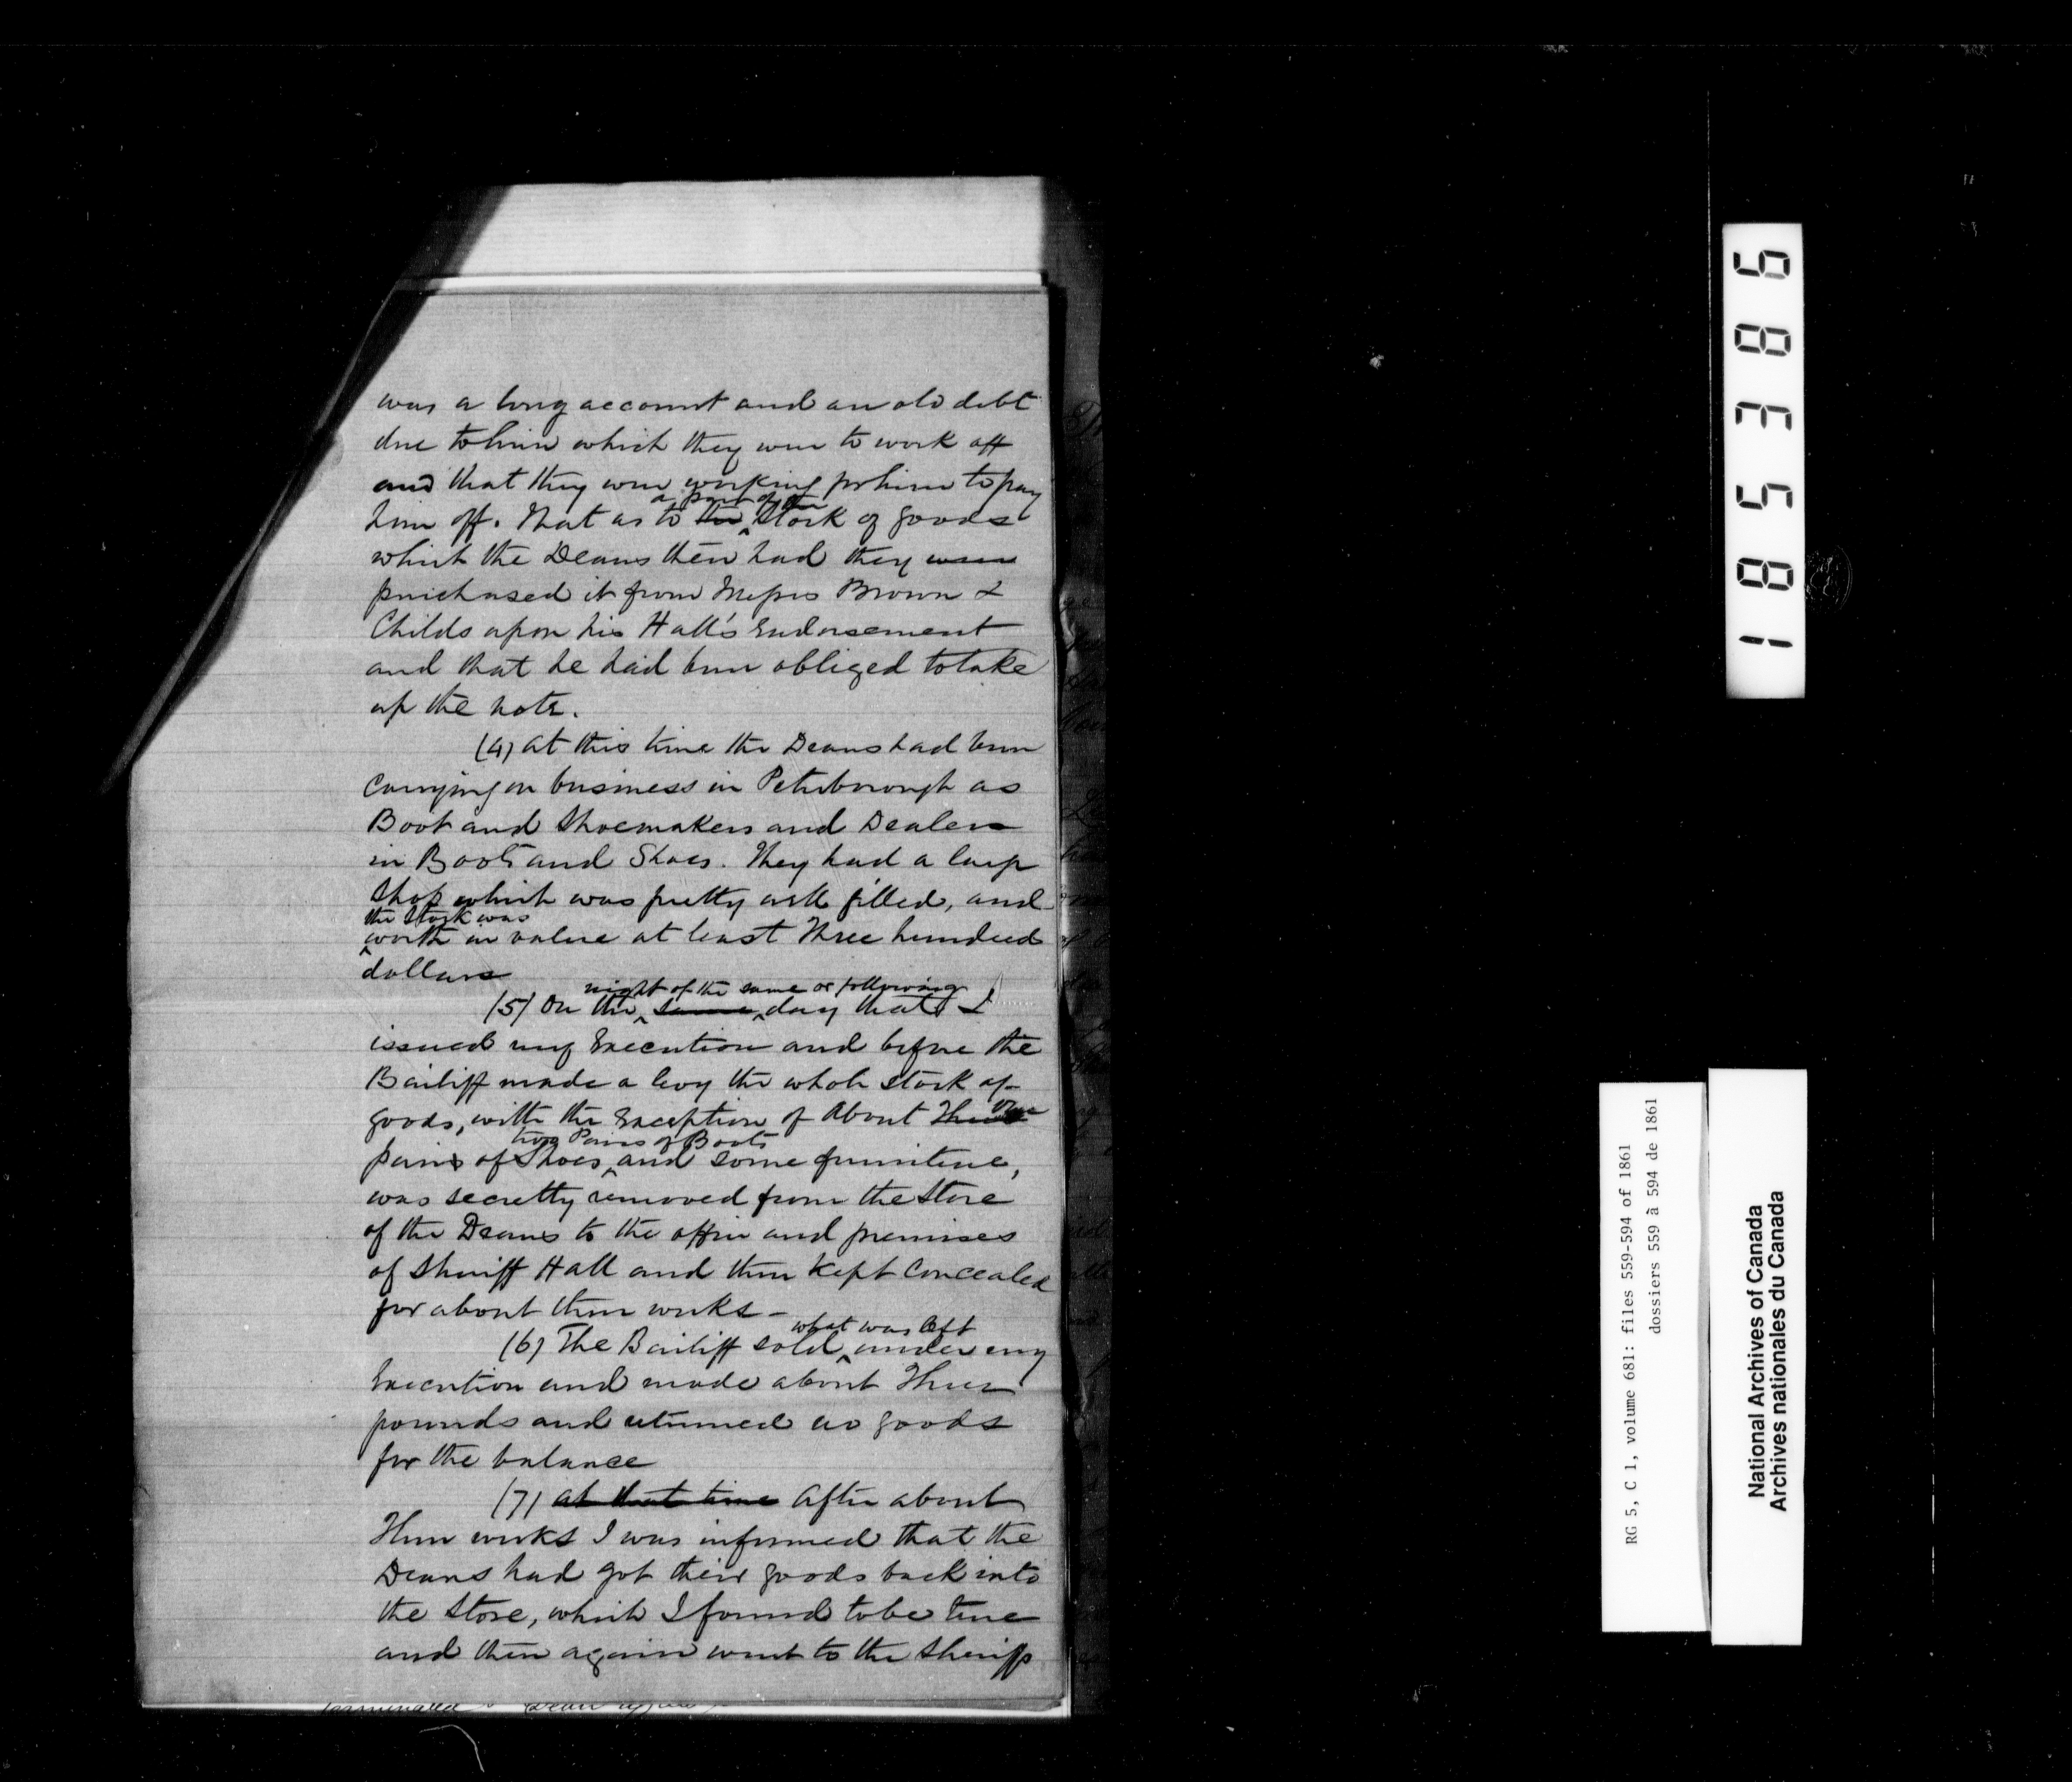 was a long account and an old debt
due to him which they were to work off
and that they were working for him to pay
him off. That as to the a part of the stock of goods
which the Deans then had they were
purchased it from Messrs Brown &
Childs upon his Hall's Endorsement
and that he had been obliged to take
up the note.
(4) At this time the Deans had been
carrying on business in Peterborough as
Boot and Shoemakers and Dealers
in Boots and Shoes. They had a large
shop which was pretty well filled, and
the stock was
worth in value at least Three hundred
dollars
night of the same or following
(5) On the same day that I
issued my Execution and before the
Bailiff made a levy the whole stock of
goods, with the Exception of About Three one
two Pairs of Boots
pairs of Shoes and some furniture,
was secretly removed from the Store
of the Deans to the office and premises
of Sheriff Hall and then kept Concealed
for about three weeks -
what was left
(6) The Bailiff sold under my
Execution and made about Three
pounds and returned no goods
for the balance
(7) at that time After about
Three weeks I was informed that the
Deans had got their goods back into
the Store, which I found to be true
and then again went to the Sheriff
Dean
185386
RG 5, C 1, volume 681: files 559-594 of 1861
dossiers 559 à 594 de 1861
National Archives of Canada
Archives nationales du Canada